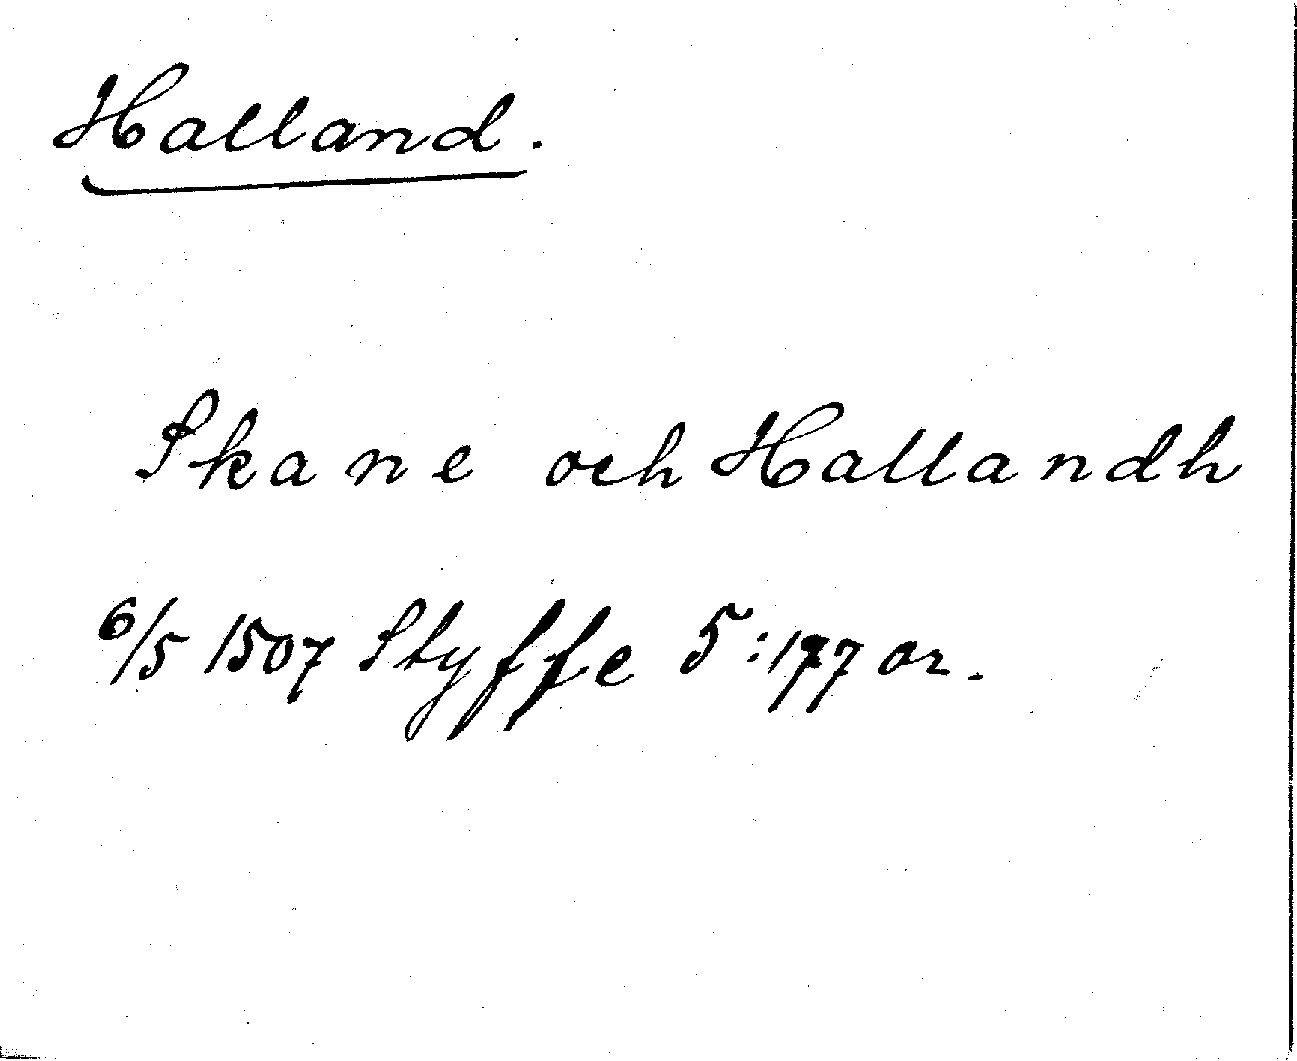 Halland.
Skane och Hallandh
6/5 1507 Styffe 5:177 or.